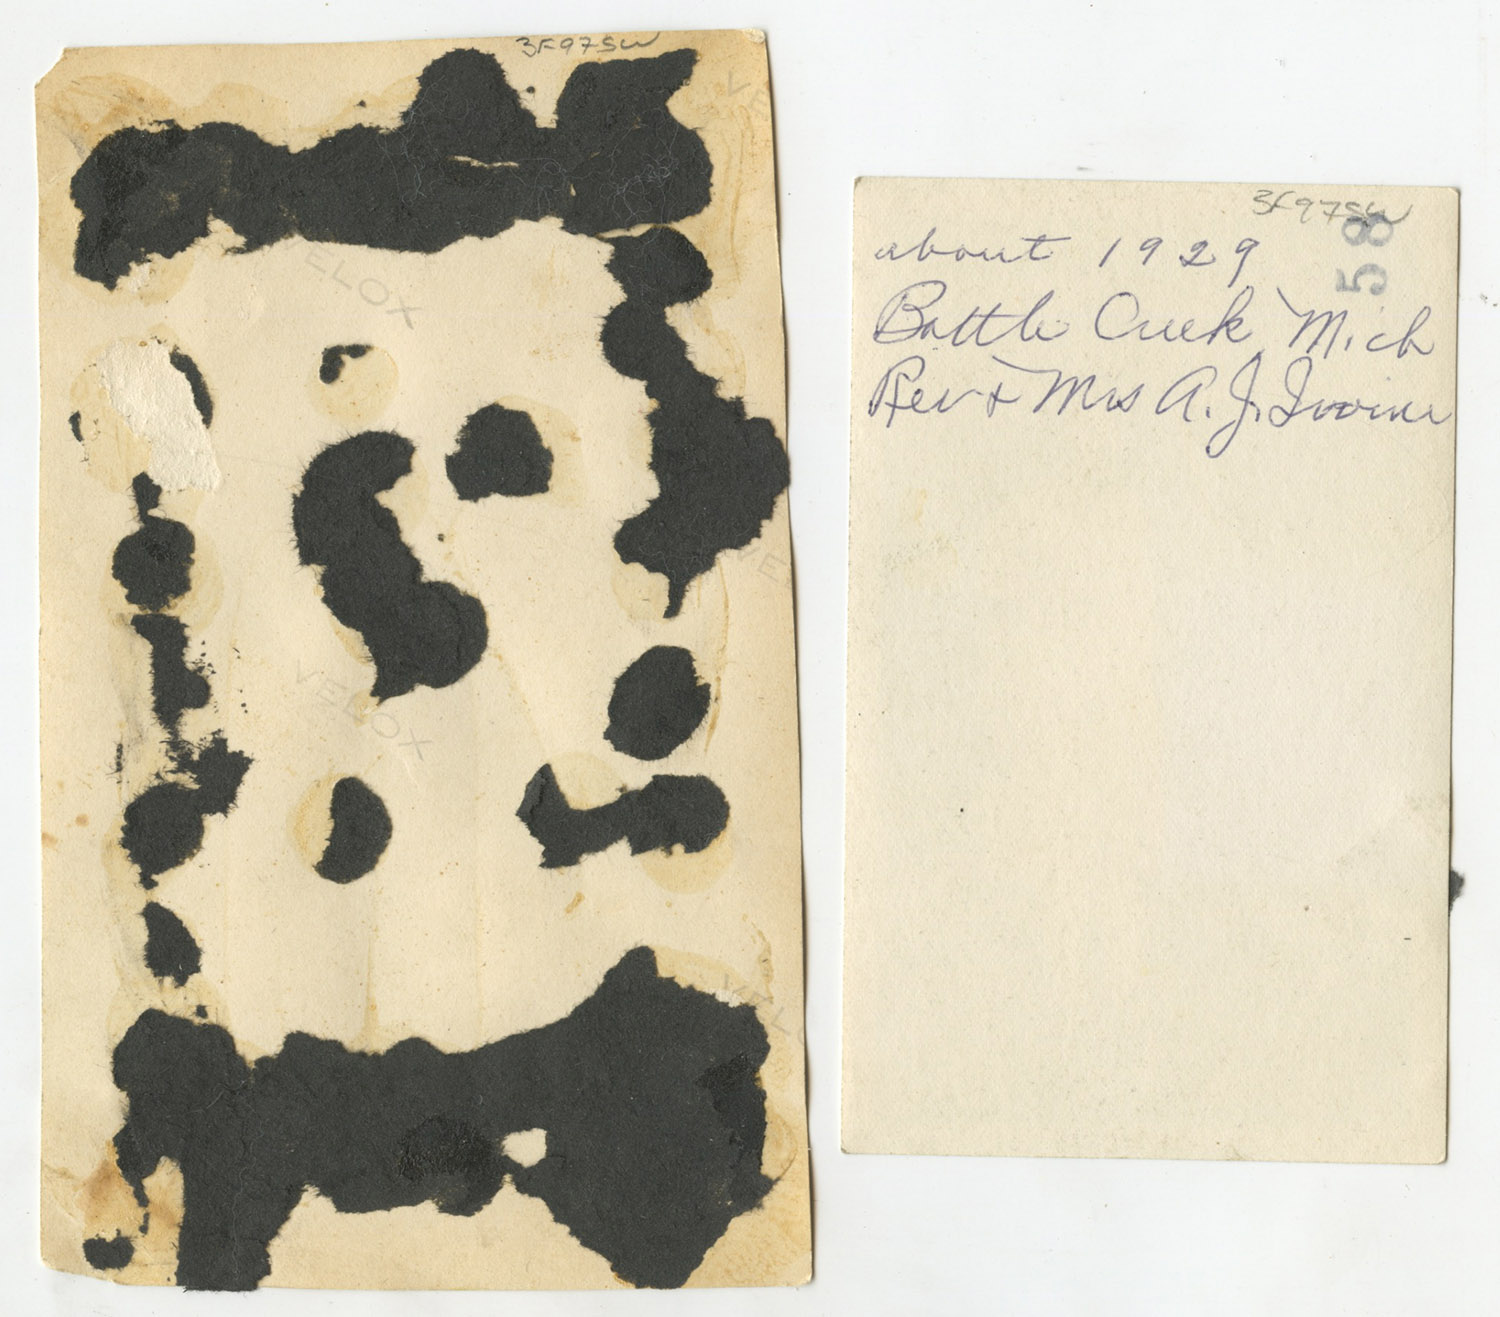 3F97SW
VE
VELOX
VE
VELOX
VEL
3F97SW
58
about 1929
Battle Creek, Mich
Rev & Mrs A. J. Irvine